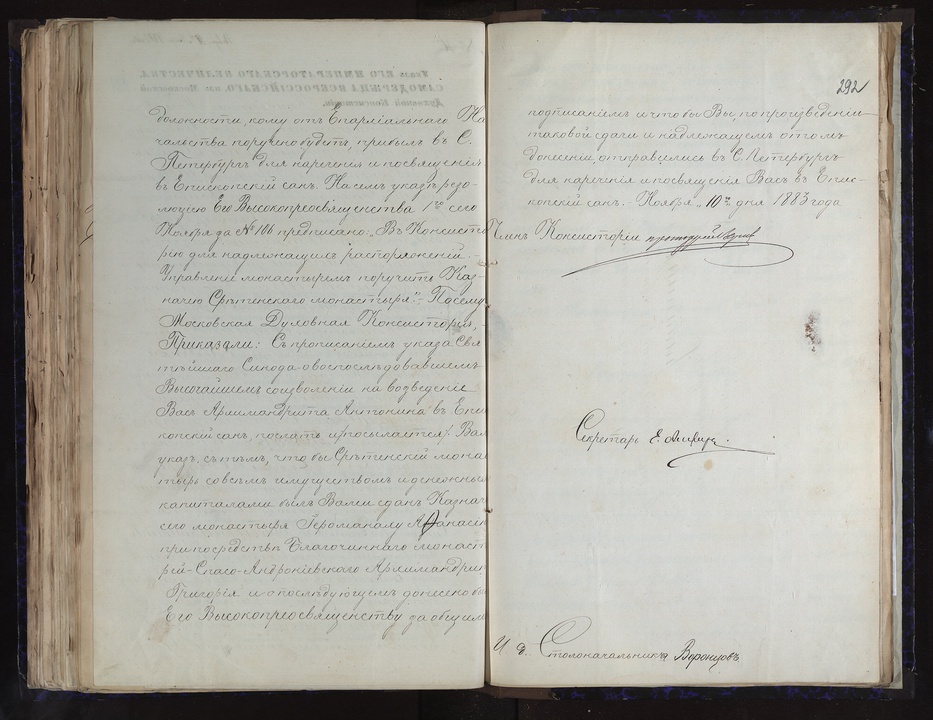 должности, кому отъ Епархіальнаго На
чальства поручено будетъ, прибылъ въ С.
Петербургъ для нареченія и посвященія
въ Епископскій санъ. На семъ указѣ резо-
люціею Его Высокопреосвященства 1го сего
Ноября за № 106 предписано: „Въ Консисто
рію для надлежащихъ распоряженій.
Управленіе монастыремъ поручить Каз-
начею Срѣтенскаго монастыря". Посему
Московская Духовная Консисторія,
Приказали: Съ прописаніемъ указа Свя
тѣйшаго Синода о воспослѣдовавшемъ
Высочайшемъ соизволеніи на возведеніе
Васъ Архимандрита Антонина въ Епис
копскій санъ, послать (и посылается) Вамъ
указъ, съ тѣмъ, что бы Срѣтенскій мона
тырь со всѣмъ имуществомъ и денежны
капиталами былъ Вами сданъ Казнач
сего монастыря Іеромонаху Аѳанасі
при посредствѣ Благочиннаго монаст
рей Спасо-Андроніевскаго Архимандри
Григорія и о послѣдующемъ донесено бы
Его Высокопреосвященству за общим
292
подписаніемъ и что бы Вы, по произведеніи
таковой сдачи и надлежащемъ о томъ
донесеніи, отправились въ С. Петербургъ
для нареченія и посвященія Васъ въ Епис-
копскій санъ. Ноября „10" дня 1883 года
Членъ Консисторіи протоіерей
Секретарь Е.
И д. Столоначальника Воронцовъ